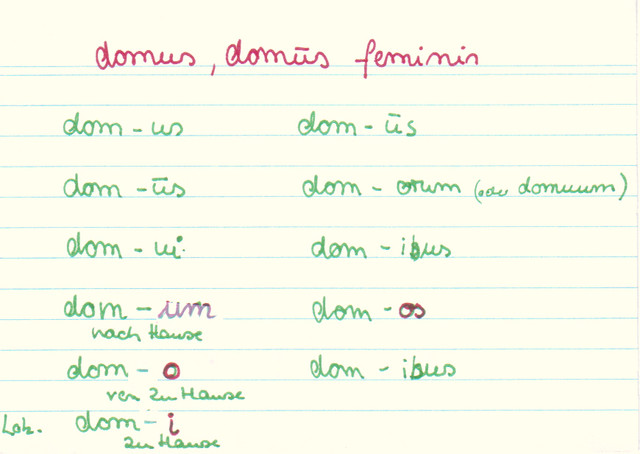 domus, domūs feminin
dom-us dom-ūs
dom-ūs dom-orum (oder domuum)
dom-ui dom-ibus
dom-um dom-os
nach Hause
dom-o dom-ibus
von zu Hause
Lok. dom-i
zu Hause